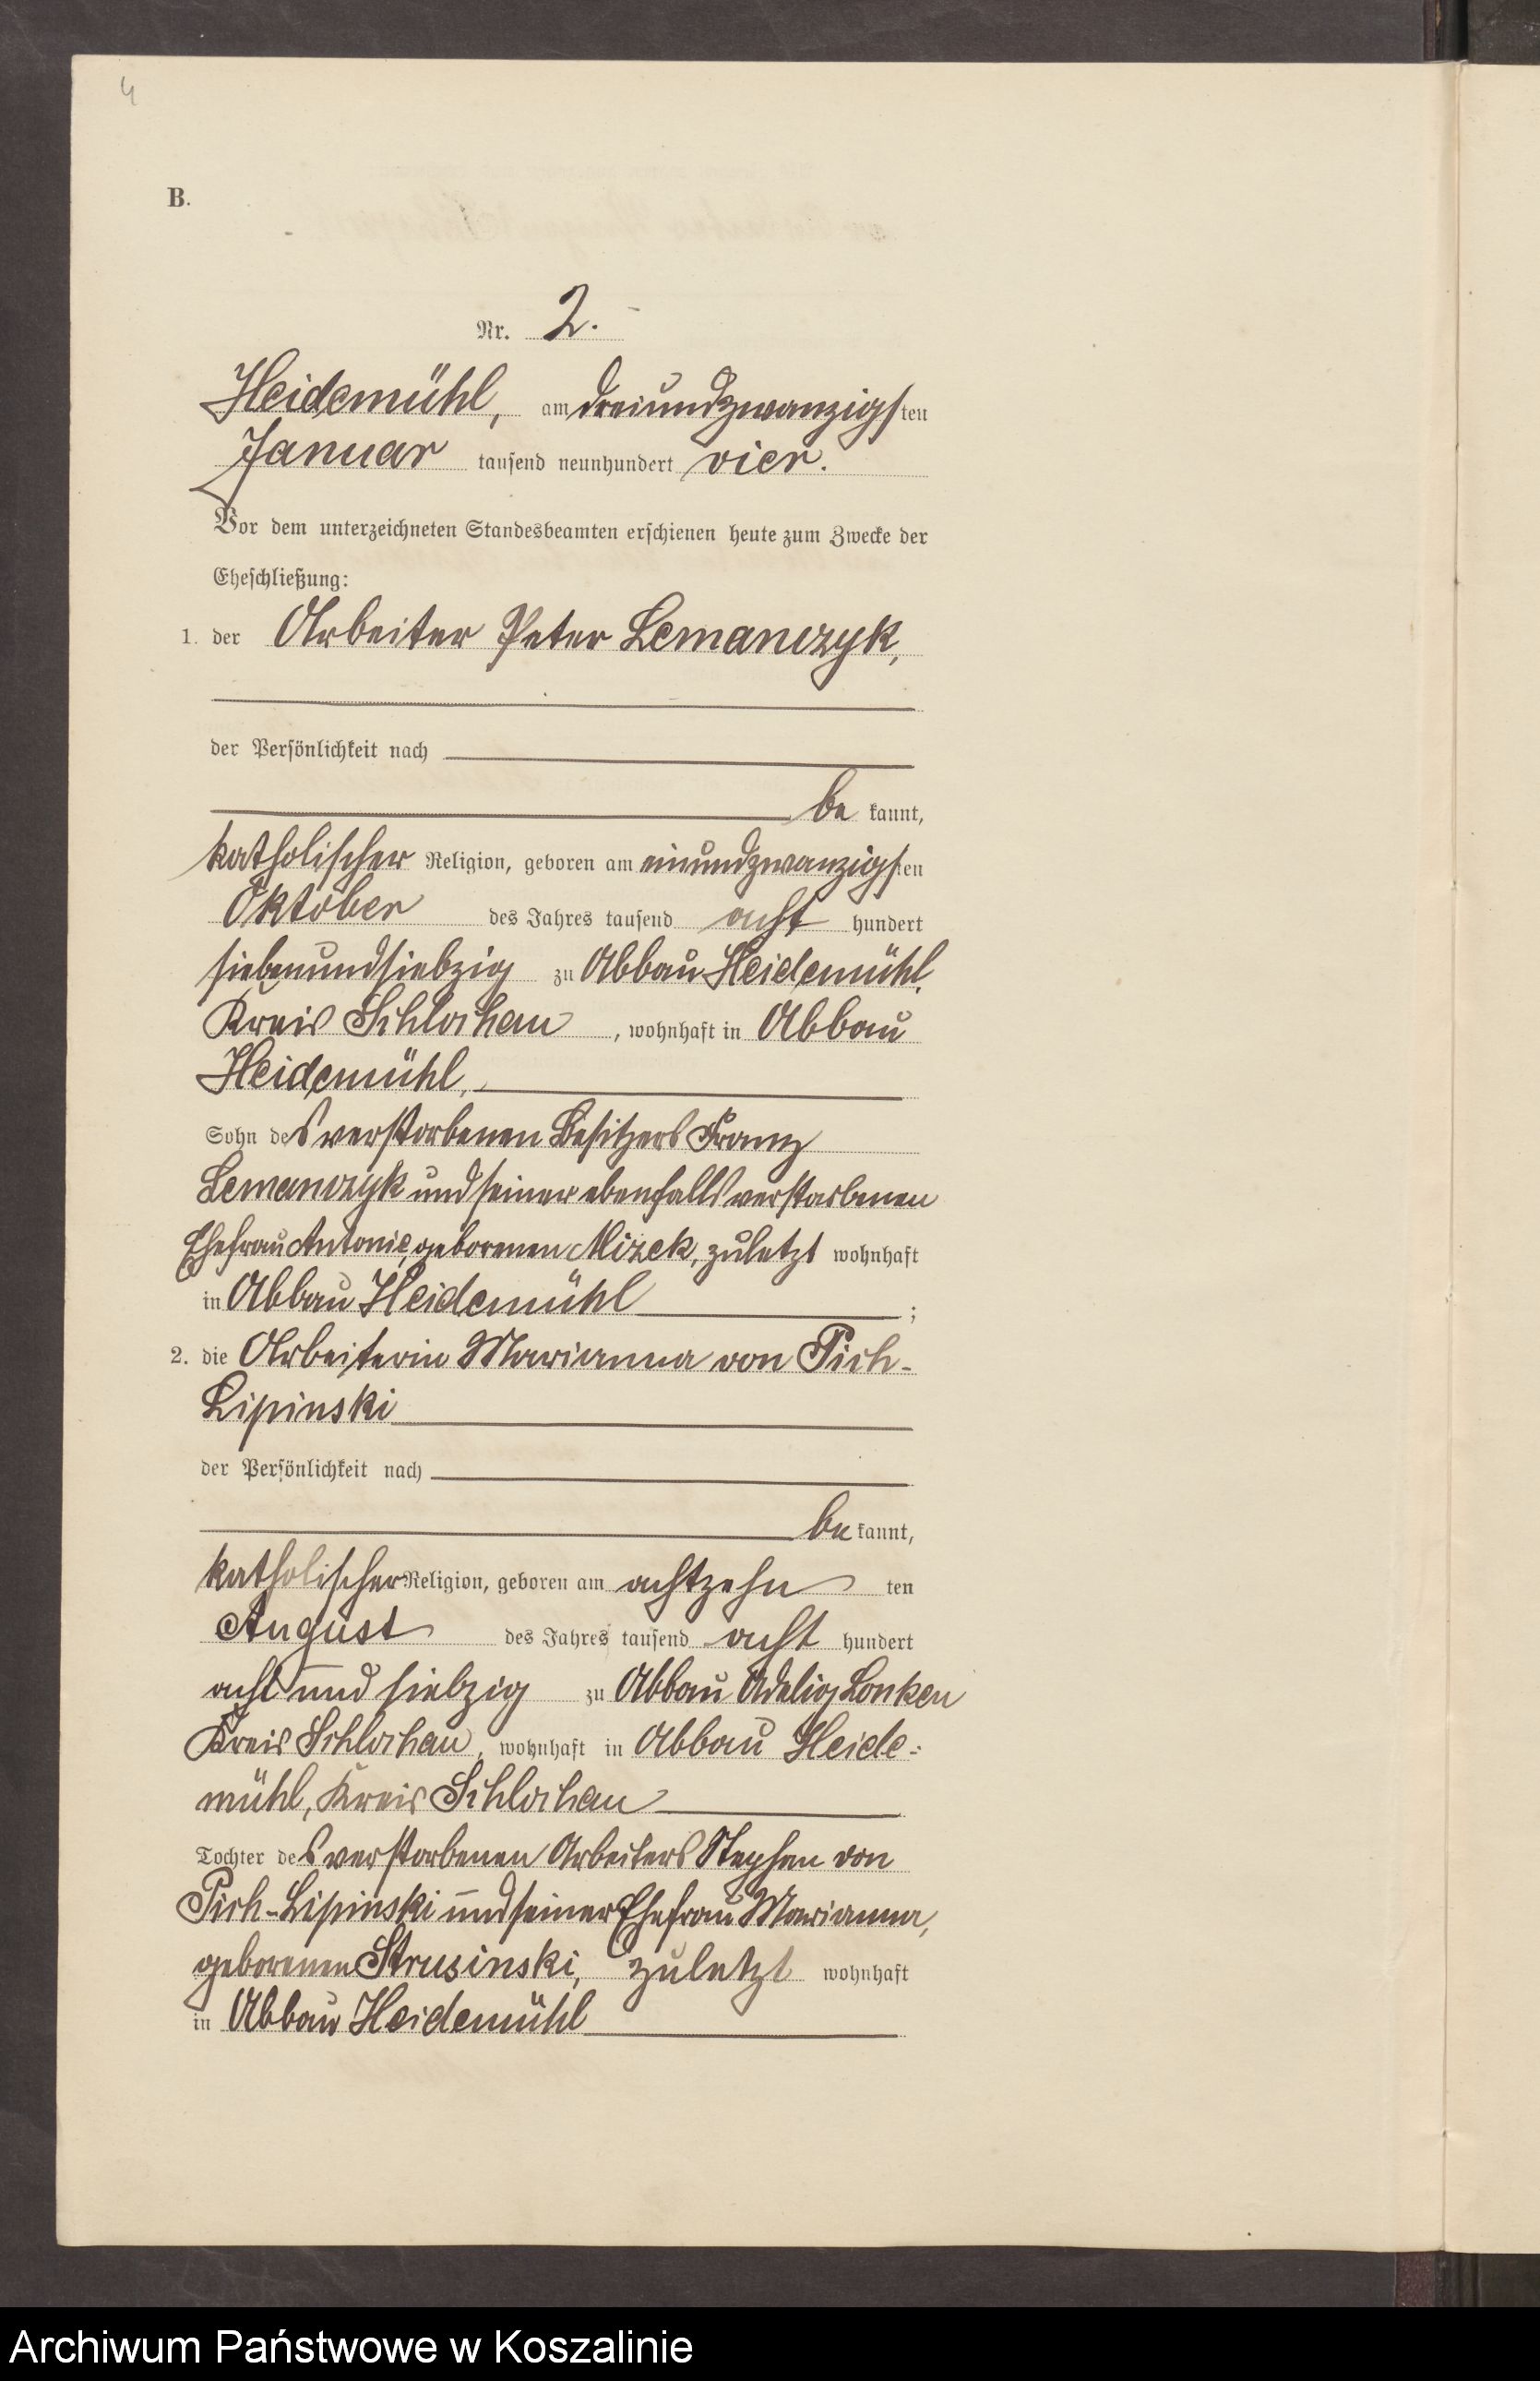 4
B.
Nr. 2.
Heidemühl, am dreiundzwanzigsten
Januar tausend neunhundert vier.
Vor dem unterzeichneten Standesbeamten erschienen heute zum Zwecke der
Eheschließung:
1. der Arbeiter Peter Lemanczyk,
der Persönlichkeit nach
be kannt,
katholischer Religion, geboren am einundzwanzigsten
Oktober des Jahres tausend acht hundert
siebenundsiebzig zu Abbau Heidemühl,
Kreis Schlochau, wohnhaft in Abbau
Heidemühl,
Sohn des verstorbenen Besitzers Franz
Lemanczyk und seiner ebenfalls verstorbenen
Ehefrau Antonie, geborenen Mizek, zuletzt wohnhaft
in Abbau Heidemühl ;
2. die Arbeiterin Marianna von Pich-
Lipinski
der Persönlichkeit nach
be kannt,
katholischer Religion, geboren am achtzehn ten
August des Jahres tausend acht hundert
acht und siebzig zu Abbau Adelig Lonken
Kreis Schlochau, wohnhaft in Abbau Heide-
mühl, Kreis Schlochau
Tochter des verstorbenen Arbeiters Stephan von
Pich-Lipinski und seiner Ehefrau Marianna,
geborenen Strusinski, zuletzt wohnhaft
in Abbau Heidemühl
Archiwum Państwowe w Koszalinie